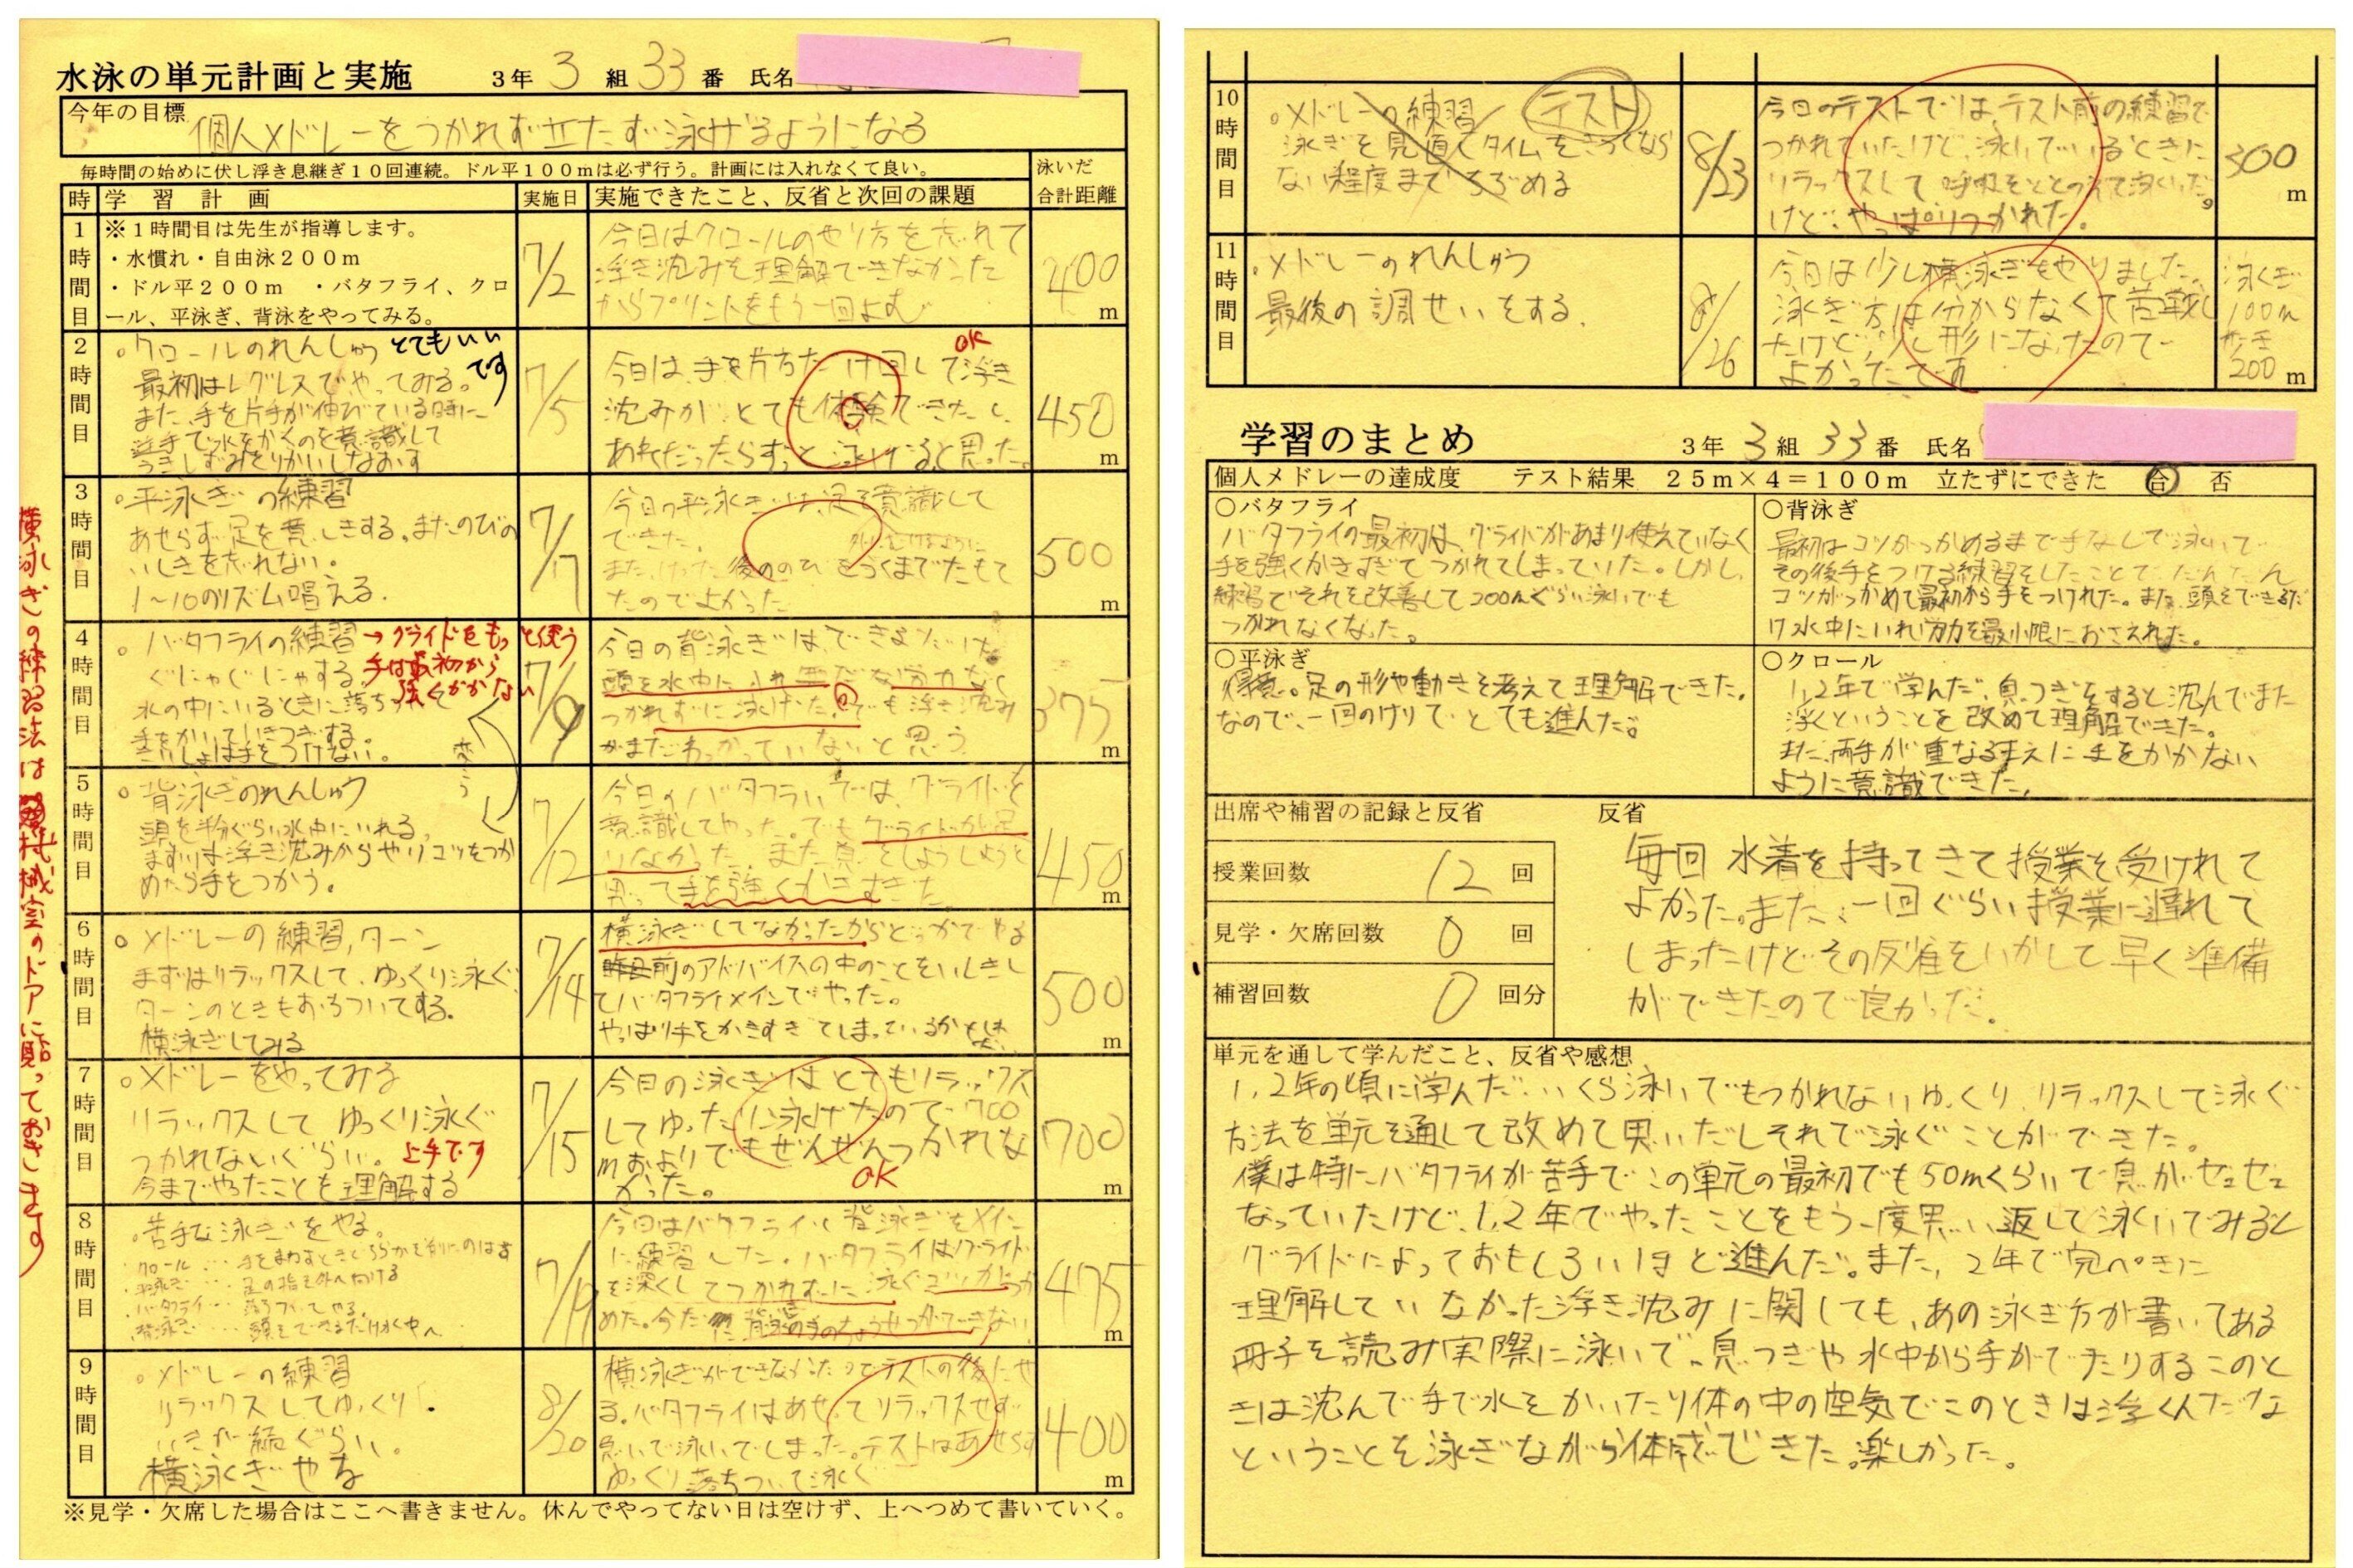 水泳の単元計画と実施 3年 3 組 33 番 氏名
今年の目標
個人メドレーをつかれず立たず泳げるようになる
毎時間の始めに伏し浮き息継ぎ10回連続。ドル平100mは必ず行う。計画には入れなくて良い。
泳いだ
合計距離
時 学習計画 実施日 実施できたこと、反省と次回の課題
1時間目
※1時間目は先生が指導します。
・水慣れ・自由泳200m
・ドル平200m ・バタフライ、クロ
ール、平泳ぎ、背泳をやってみる。
7/2
今日はクロールのやり方を忘れて
浮き沈みを理解できなかった
からプリントをもう一回よむ
400 m
2時間目
。クロールのれんしゅう とてもいい
です
最初はレグレスでやってみる。
また、手を片手が伸びている時に
逆手で水をかくのを意識して
うきしずみをりかいしなおす
7/5
今日は、手を片方だけ回して浮き
沈みがとても体験できたし、
あれだったらずっと泳げると思った。
OK
450 m
3時間目
。平泳ぎの練習
あせらず足を意しきする。またのびの
いしきを忘れない。
1〜10のリズム唱える。
7/17
今日の平泳ぎは、足を意識して
できた。
また、けった後ののびをつくまでたもて
たのでよかった
500 m
4時間目
。バタフライの練習→グライドをもっと使う
ぐにゃぐにゃする。手は最初から
強くかかない
水の中にいるときに落ちついて
手をかいていきつぎする。
さいしょは手をつけない。
変こう
7/9
今日の背泳ぎは、できるだけ
頭を水中に入れ無だな労力なく
つかれずに泳げた。でも浮き沈み
がまだわかっていないと思う
375 m
5時間目
。背泳ぎのれんしゅう
頭を半分ぐらい水中にいれる。
まずは浮き沈みからやりコツをつか
めたら手をつかう。
7/12
今日のバタフライでは、グライドを
意識してやった。でもグライドが足
りなかった。また息をしようしようと
思って手を強くかきすぎた。
450 m
6時間目
。メドレーの練習,ターン
まずはリラックスして、ゆっくり泳ぐ
ターンのときもおちついてする。
横泳ぎしてみる
7/14
横泳ぎしてなかったからどっかでやる
前のアドバイスの中のことをいしきし
てバタフライメインでやった。
やっぱり手をかきすぎてしまっているか
500 m
7時間目
。メドレーをやってみる
リラックスして ゆっくり泳ぐ
つかれないぐらい。 上手です
今までやったことも理解する
7/15
今日の泳ぎはとてもリラックス
してゆったりに泳げたので700
mおよりでもぜんぜんつかれな
かった。
OK
700 m
8時間目
。苦手な泳ぎをやる。
・クロール…手をまわすときくちらかを前にのばす
・平泳ぎ…足の指を外へ向ける
・バタフライ…落ちついてやる。
・背泳ぎ…頭をできるだけ水中へ
7/19
今日はバタフライと背泳ぎをメイン
に練習した。バタフライはグライド
を深くしてつかれずに泳ぐコツがつか
めた。今だに背泳の手のちょうせつができない
475 m
9時間目
。メドレーの練習
リラックスしてゆっくり
いきが続くぐらい。
横泳ぎやる
8/20
横泳ぎができなかったのでテストの後にや
る。バタフライはあせってリラックスせず
急いで泳いでしまった。テストはあせらず
ゆっくり落ちついて泳ぐ
400 m
※見学・欠席した場合はここへ書きません。休んでやってない日は空けず、上へつめて書いていく。
横泳ぎの練習法は機械室のドアに貼っておきます
10時間目
。メドレーの練習 テスト
泳ぎを見直しタイムをきつくなら
ない程度までちぢめる
8/23
今日のテストでは、テスト前の練習で
つかれていたけど、泳いでいるときに
リラックスして呼吸をととのえて泳いだ。
けど、やっぱりつかれた。
300 m
11時間目
。メドレーのれんしゅう
最後の調せいをする.
8/26
今日は少し横泳ぎをやりました。
泳ぎ方は分からなくて苦戦し
たけど、少し形になったので
よかったです
泳ぎ
100m
200 m
学習のまとめ 3年 3組 33番 氏名
個人メドレーの達成度 テスト結果 25m×4=100m 立たずにできた 合 否
○バタフライ
バタフライの最初は、グライドがあまり使えていなく
手を強くかきすぎてつかれてしまっていた。しかし、
練習でそれを改善して200mぐらい泳いでも
つかれなくなった。
○背泳ぎ
最初はコツがつかめるまで手なしで泳いで
その後手をつける練習をしたことでだんだん
コツがつかめて最初から手をつけれた。また、頭をできるだ
け水中にいれ労力を最小限におさえれた。
○平泳ぎ
得意。足の形や動きを考えて理解できた。
なので、一回のけりでとても進んだ。
○クロール
1,2年で学んだ、息つぎをすると沈んでまた
浮くということを改めて理解できた。
また、両手が重なるまえに手をかかない
ように意識できた。
出席や補習の記録と反省 反省
授業回数 12 回
見学・欠席回数 0 回
補習回数 0 回分
毎回 水着を持ってきて授業を受けれて
よかった。また、一回ぐらい授業に遅れて
しまったけどその反省をいかして早く準備
ができたので良かった。
単元を通して学んだこと、反省や感想
1,2年の頃に学んだいくら泳いでもつかれないゆっくり、リラックスして泳ぐ
方法を単元を通して改めて思いだしそれで泳ぐことができた。
僕は特にバタフライが苦手でこの単元の最初でも50mくらいで息がゼェゼェ
なっていたけど、1,2年でやったことをもう一度思い返して泳いでみると
グライドによっておもしろいほど進んだ。また、2年で完ぺきに
理解していなかった浮き沈みに関しても、あの泳ぎ方が書いてある
冊子を読み実際に泳いで、息つぎや水中から手がでたりするこのと
きは沈んで手で水をかいたり体の中の空気でこのときは浮くんだな
ということを泳ぎながら体感できた。楽しかった。